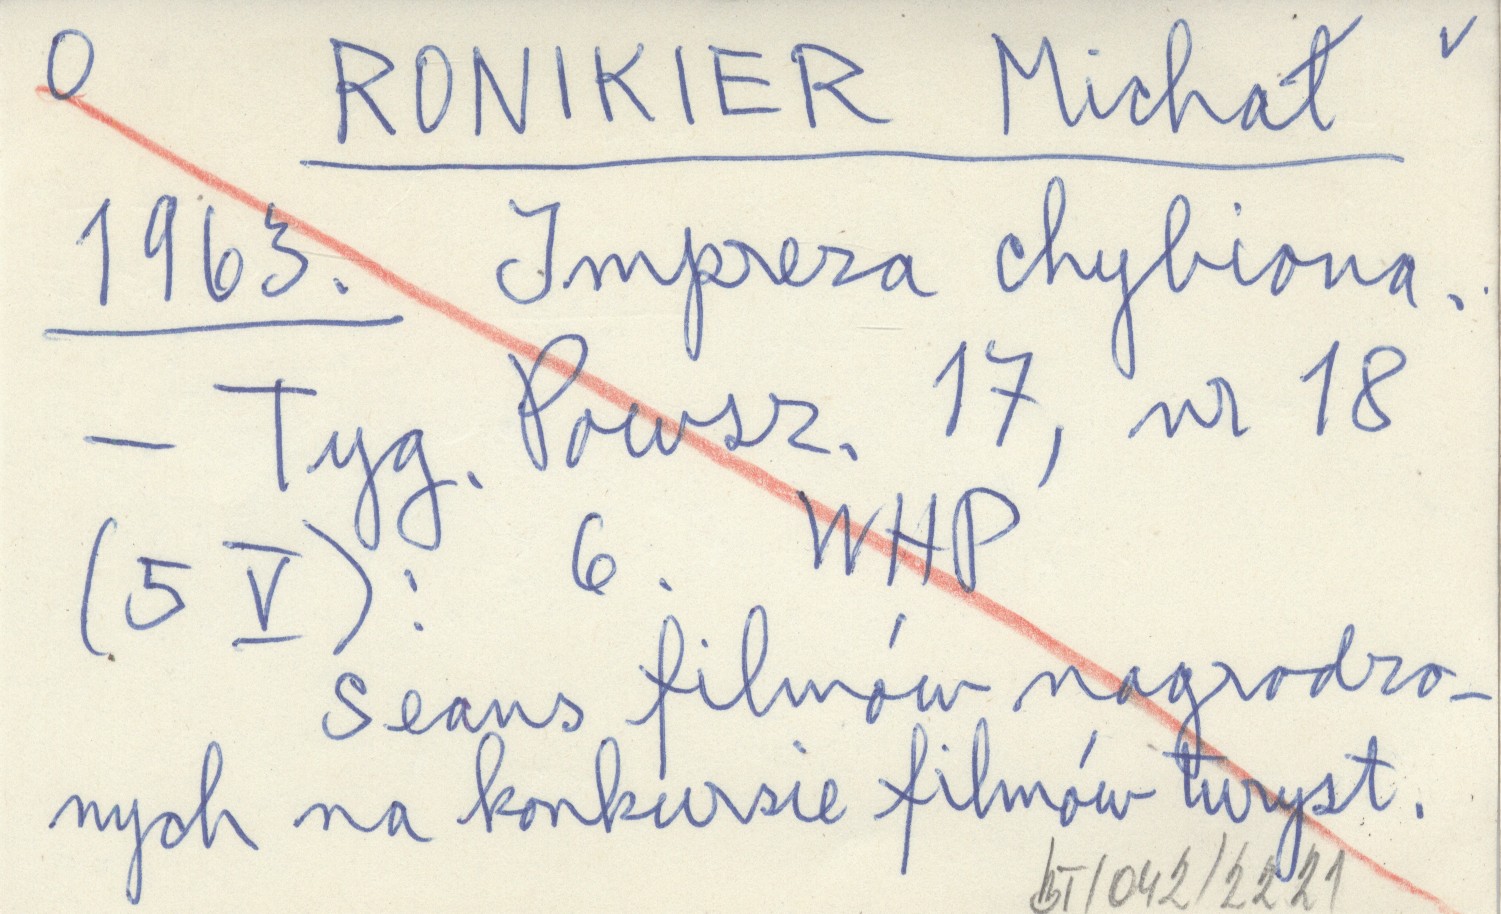 O RONIKIER Michał v
1963. Impreza chybiona.
– Tyg. Powsz. 17, nr 18
(5 V): 6. WHP
seans filmów nagrodzo-
nych na konkursie filmów turyst.
/042/2221